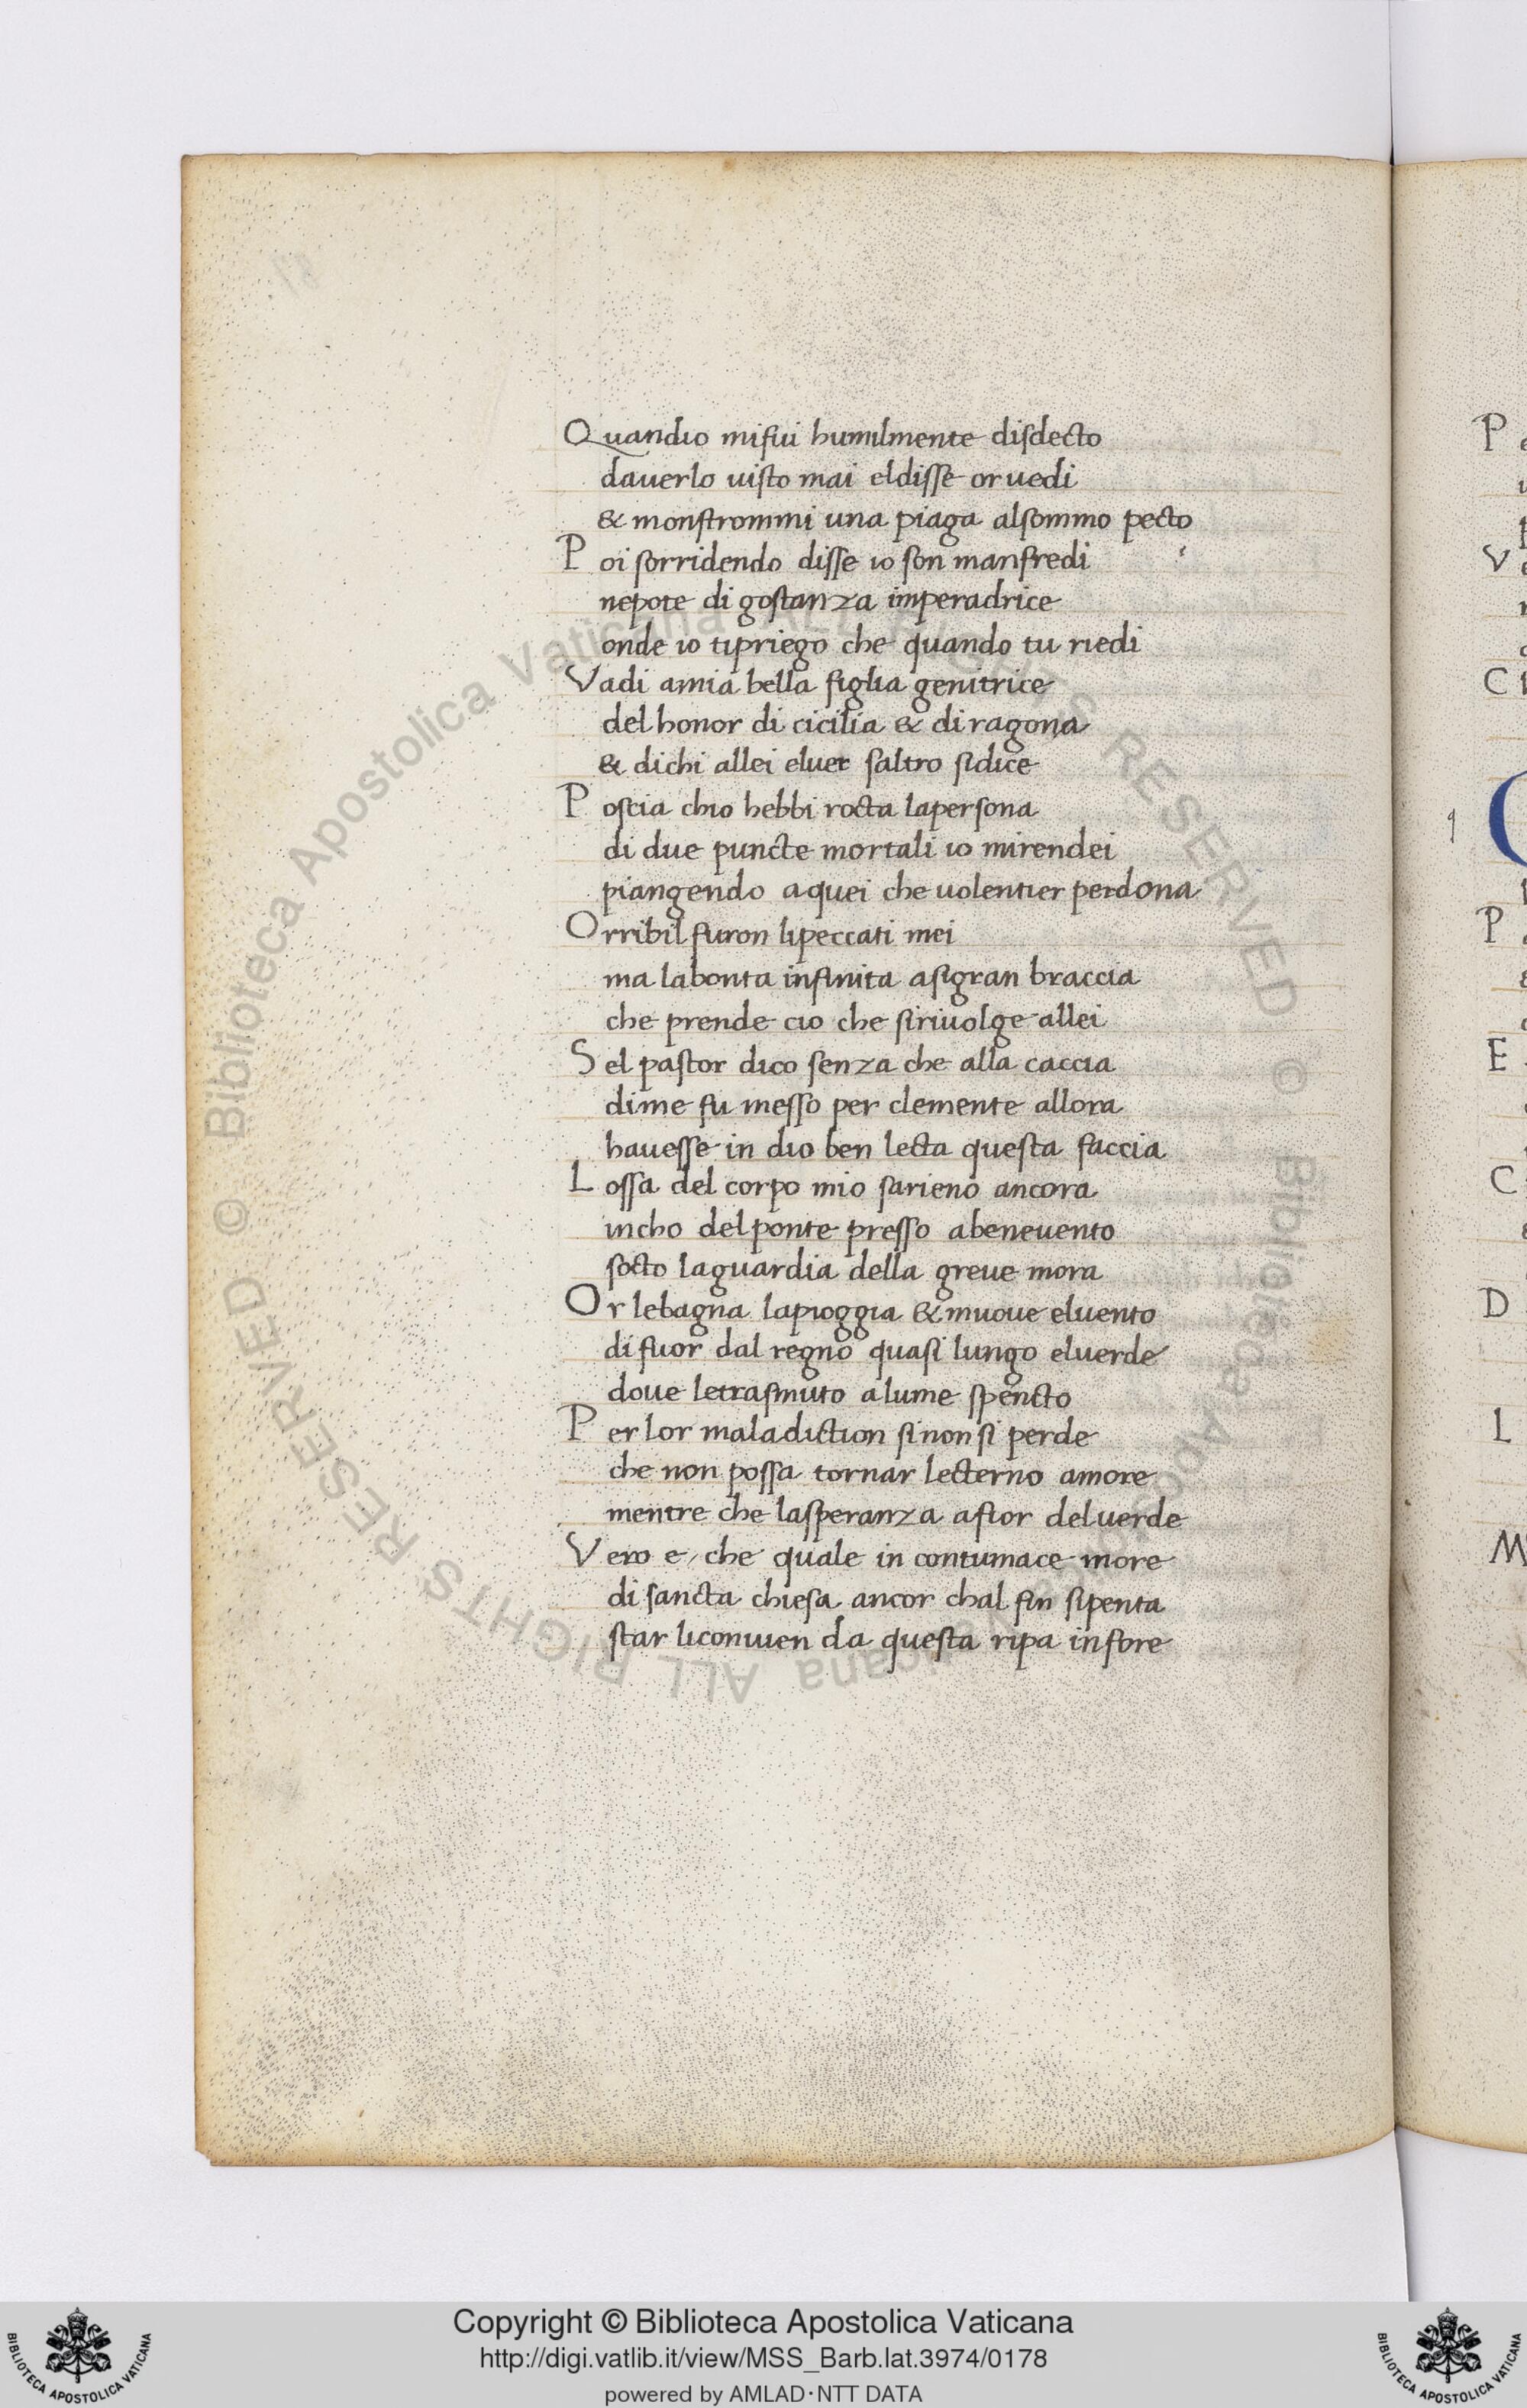 Quandio mifui humilmente disdecto
dauerlo uisto mai eldisse or uedi
& monstrommi una piaga alsommo pecto
Poi sorridendo disse io son manfredi
nepote di gostanza imperadrice
onde io tipriego che quando tu riedi
Vadi amia bella figlia genitrice
del honor di cicilia & di ragona
& dichi allei eluer saltro sidice
Poscia chio hebbi rocta lapersona
di due puncte mortali io mirendei
piangendo aquei che uolentier perdona
Orribil furon lipeccati mei
ma labonta infinita asigran braccia
che prende cio che siriuolge allei
Sel pastor dico senza che alla caccia
dime fu messo per clemente allora
hauesse in dio ben lecta questa faccia
Lossa del corpo mio sarieno ancora
incho delponte presso abeneuento
socto laguardia della greue mora
Or lebagna lapioggia & muoue eluento
di fuor dal regno quasi lungo eluerde
doue letrasmuto alume spencto
Per lor maladiction sinon si perde
che non possa tornar lecterno amore
mentre che lasperanza afior deluerde
Vero e, che quale in contumace more
di sancta chiesa ancor chal fin sipenta
star liconuien da questa ripa infore
P
V
C
P
E
C
D
L
M
Copyright © Biblioteca Apostolica Vaticana
http://digi.vatlib.it/view/MSS_Barb.lat.3974/0178
powered by AMLAD·NTT DATA
BIBLIOTECA APOSTOLICA VATICANA
BIBLIOTECA APOSTOLICA VATICANA